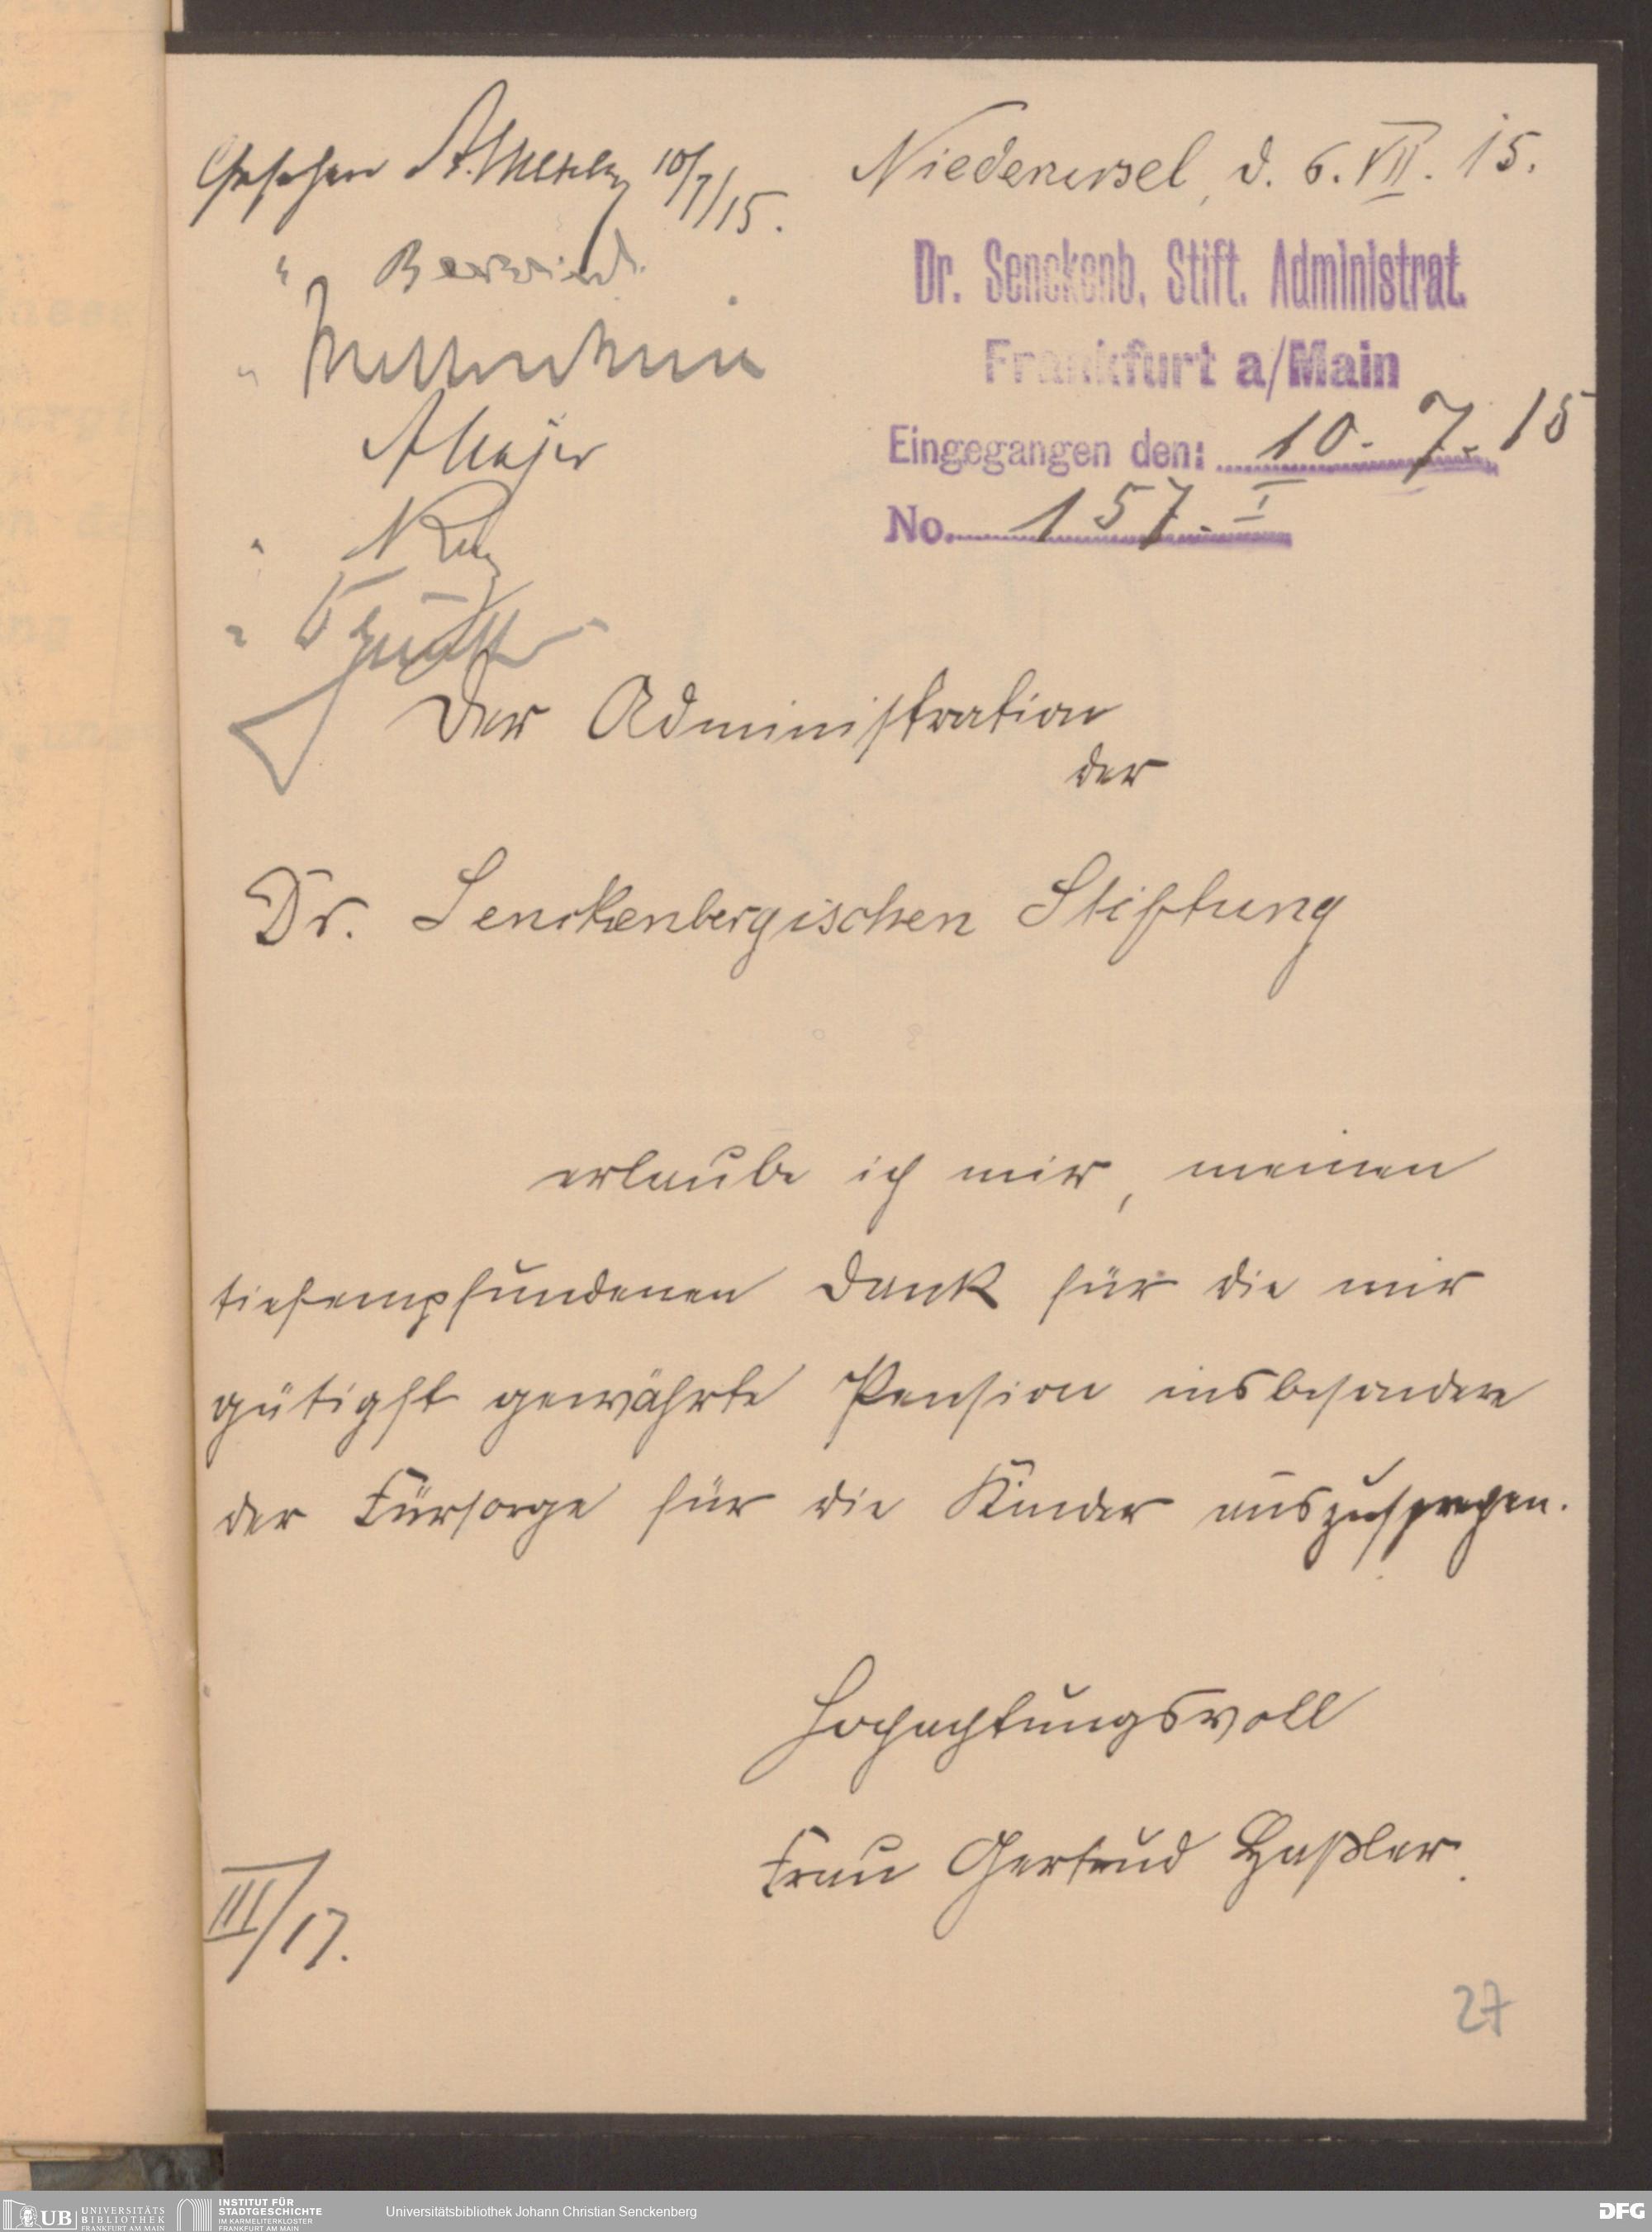 Gesehen
10/7/15.
Niederursel, d. 6. VII. 15.
Dr. Senckenb. Stift. Administrat.
Frankfurt a/Main
Eingegangen den: 10. 7. 15
No. 157. I
Der Administration
der
Dr. Senckenbergischen Stiftung
erlaube ich mir, meinen
tiefempfundenen Dank für die mir
gütigst gewährte Pension insbesondere
der Fürsorge für die Kinder auszusprechen.
Hochachtungsvoll
Frau Gertrud Haßler.
III/17.
27
UB UNIVERSITÄTS
BIBLIOTHEK
FRANKFURT AM MAIN
INSTITUT FÜR
STADTGESCHICHTE
IM KARMELITERKLOSTER
FRANKFURT AM MAIN
Universitätsbibliothek Johann Christian Senckenberg
DFG